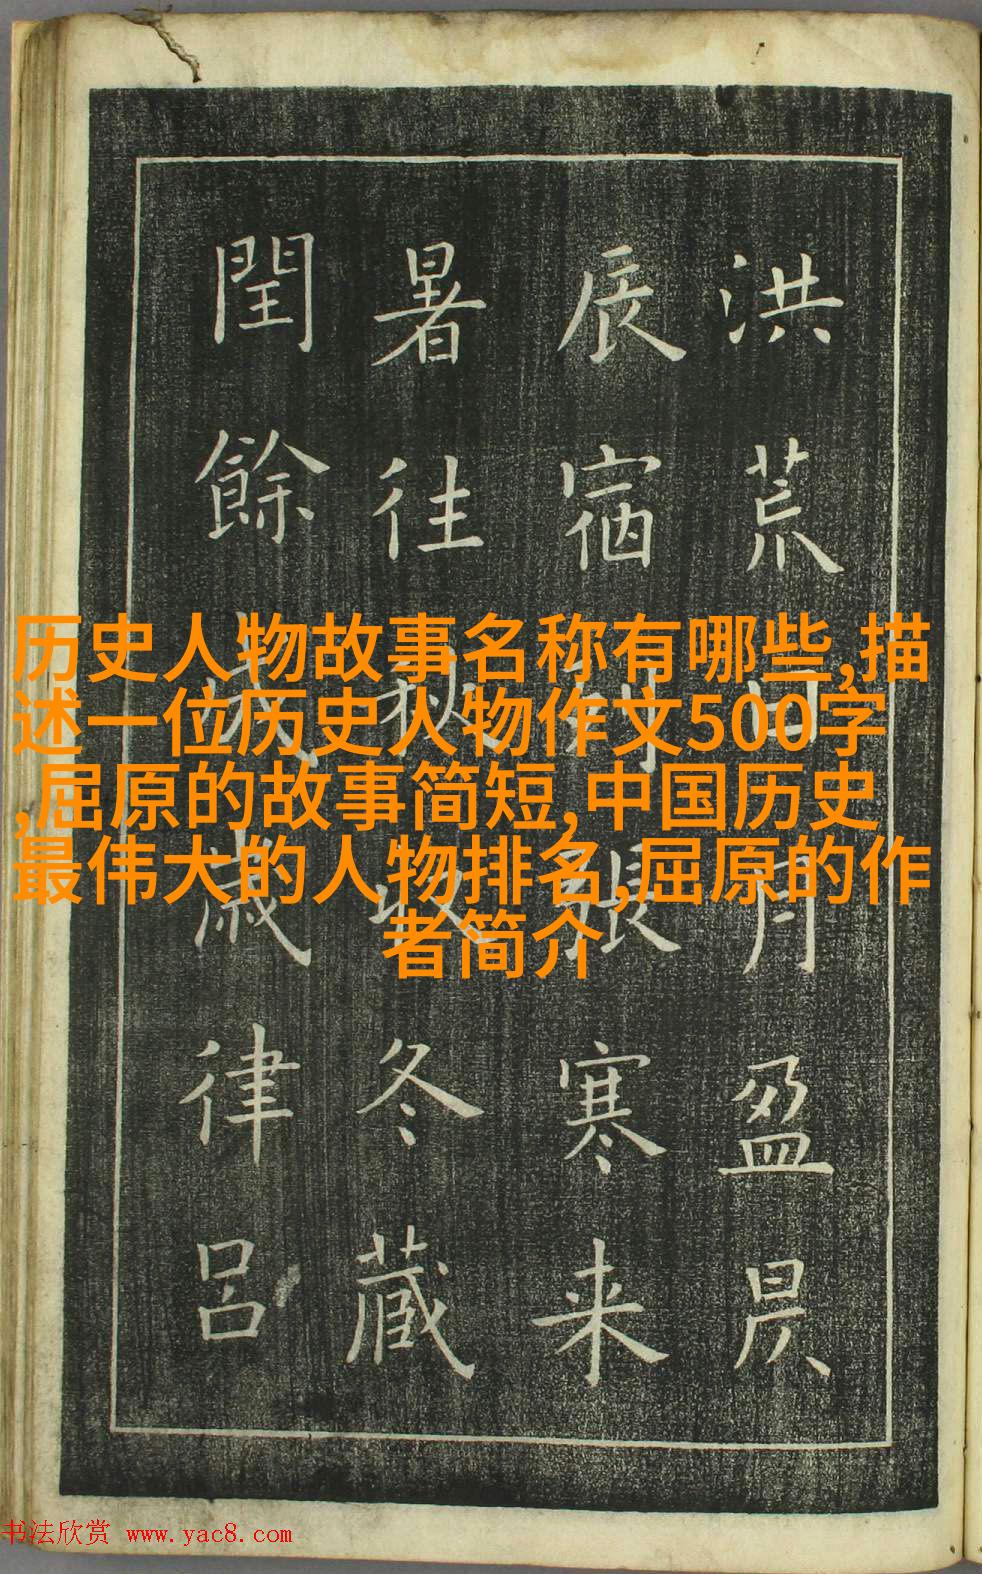 洪荒日月盈昃
辰宿列張寒来
暑往秋收冬藏
閏餘成歲律呂
历史人物故事名称有哪些,描
述一位历史人物作文500字
,屈原的故事简短,中国历史
最伟大的人物排名,屈原的作
者简介
书法欣赏 www.yac8.com